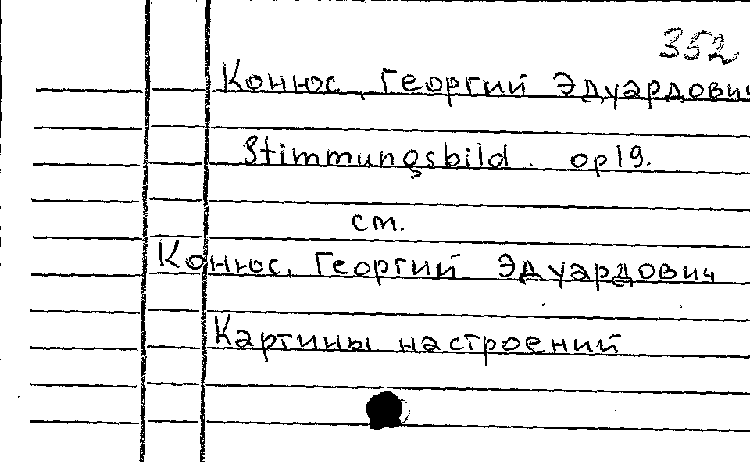 352
Конюс, Георгий Эдуардович
Stimmungsbild. op 19.
см.
Конюс, Георгий Эдуардович
Картины настроений